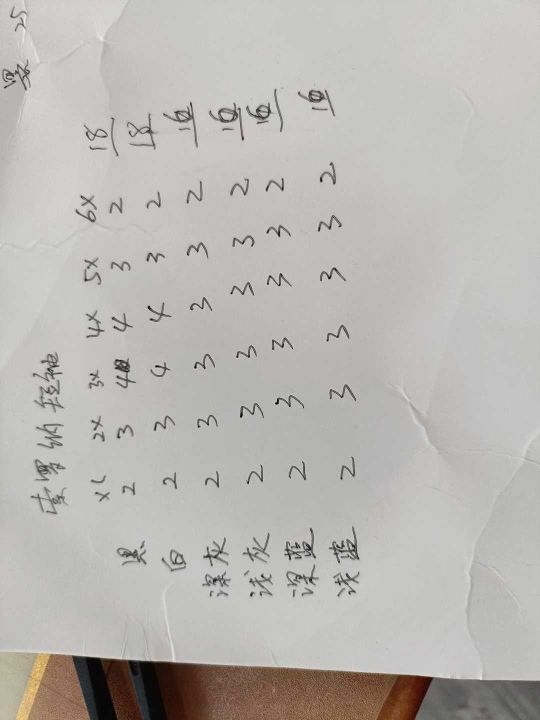 25
索罗纳短袖
XL 2X 3X 4X 5X 6X
黑 2 3 4 4 3 2 18
白 2 3 4 4 3 2 18
深灰 2 3 3 3 3 2 16
浅灰 2 3 3 3 3 2 16
深蓝 2 3 3 3 3 2 16
浅蓝 2 3 3 3 3 2 16